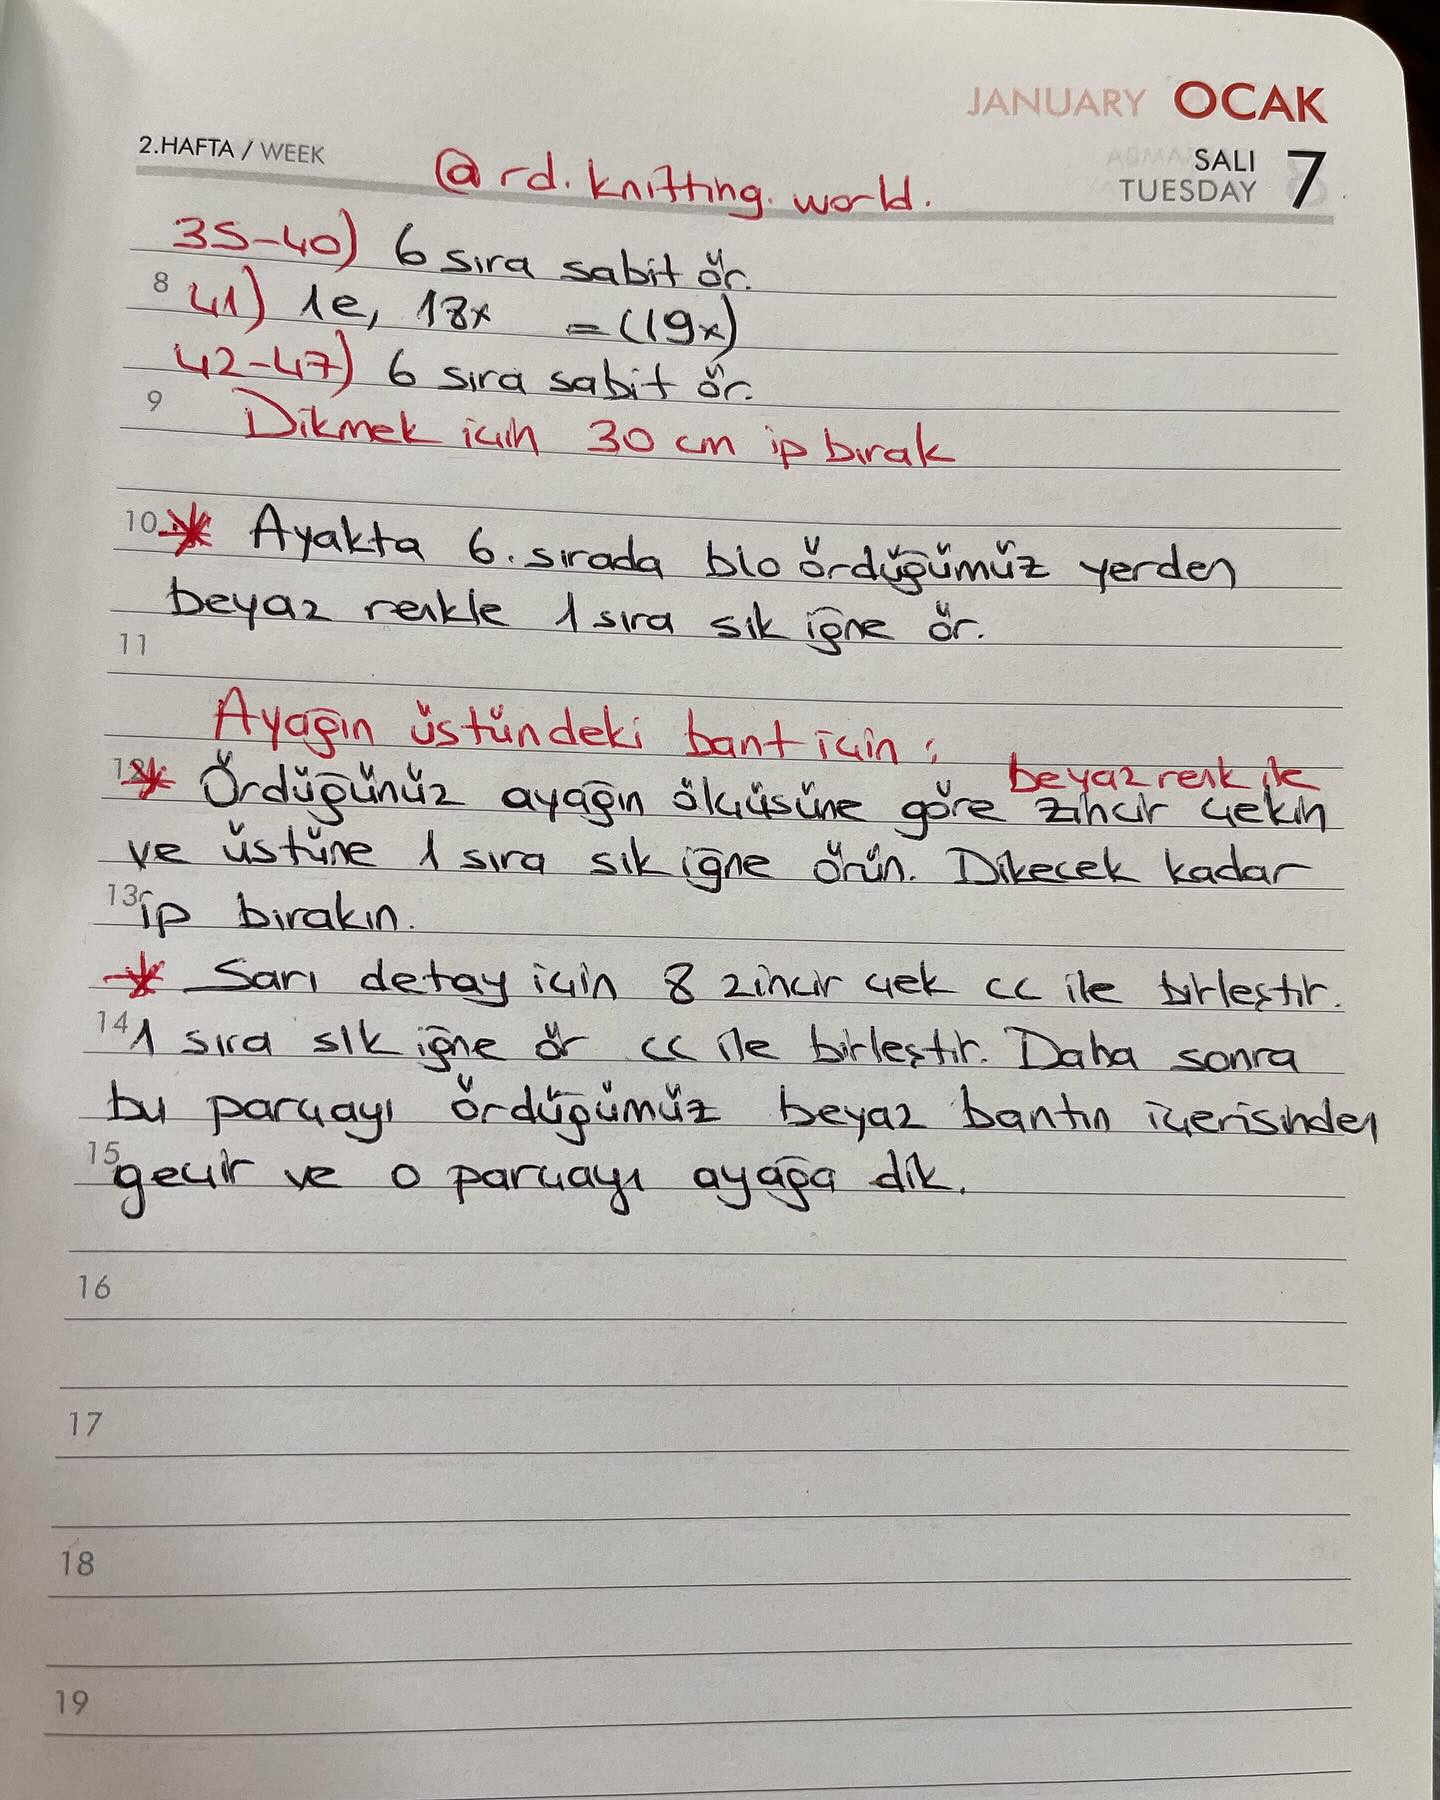 JANUARY OCAK
2.HAFTA / WEEK
SALI 7
TUESDAY
@rd.knitting.world.
35-40) 6 sıra sabit ör.
8
41) 1e, 18x =(19x)
42-47) 6 sıra sabit ör.
9
Dikmek için 30 cm ip bırak
10
* Ayakta 6. sırada blo ördüğümüz yerden
beyaz renkle 1 sıra sık iğne ör.
11
Ayağın üstündeki bant için:
beyaz renk ile
12
* Ördüğünüz ayağın ölçüsüne göre zincir çekin
ve üstüne 1 sıra sık iğne örün. Dikecek kadar
13
ip bırakın.
* Sarı detay için 8 zincir çek cc ile birleştir.
14
1 sıra sık iğne ör cc ile birleştir. Daha sonra
bu parçayı ördüğümüz beyaz bantın içerisinden
15
geçir ve o parçayı ayağa dik.
16
17
18
19